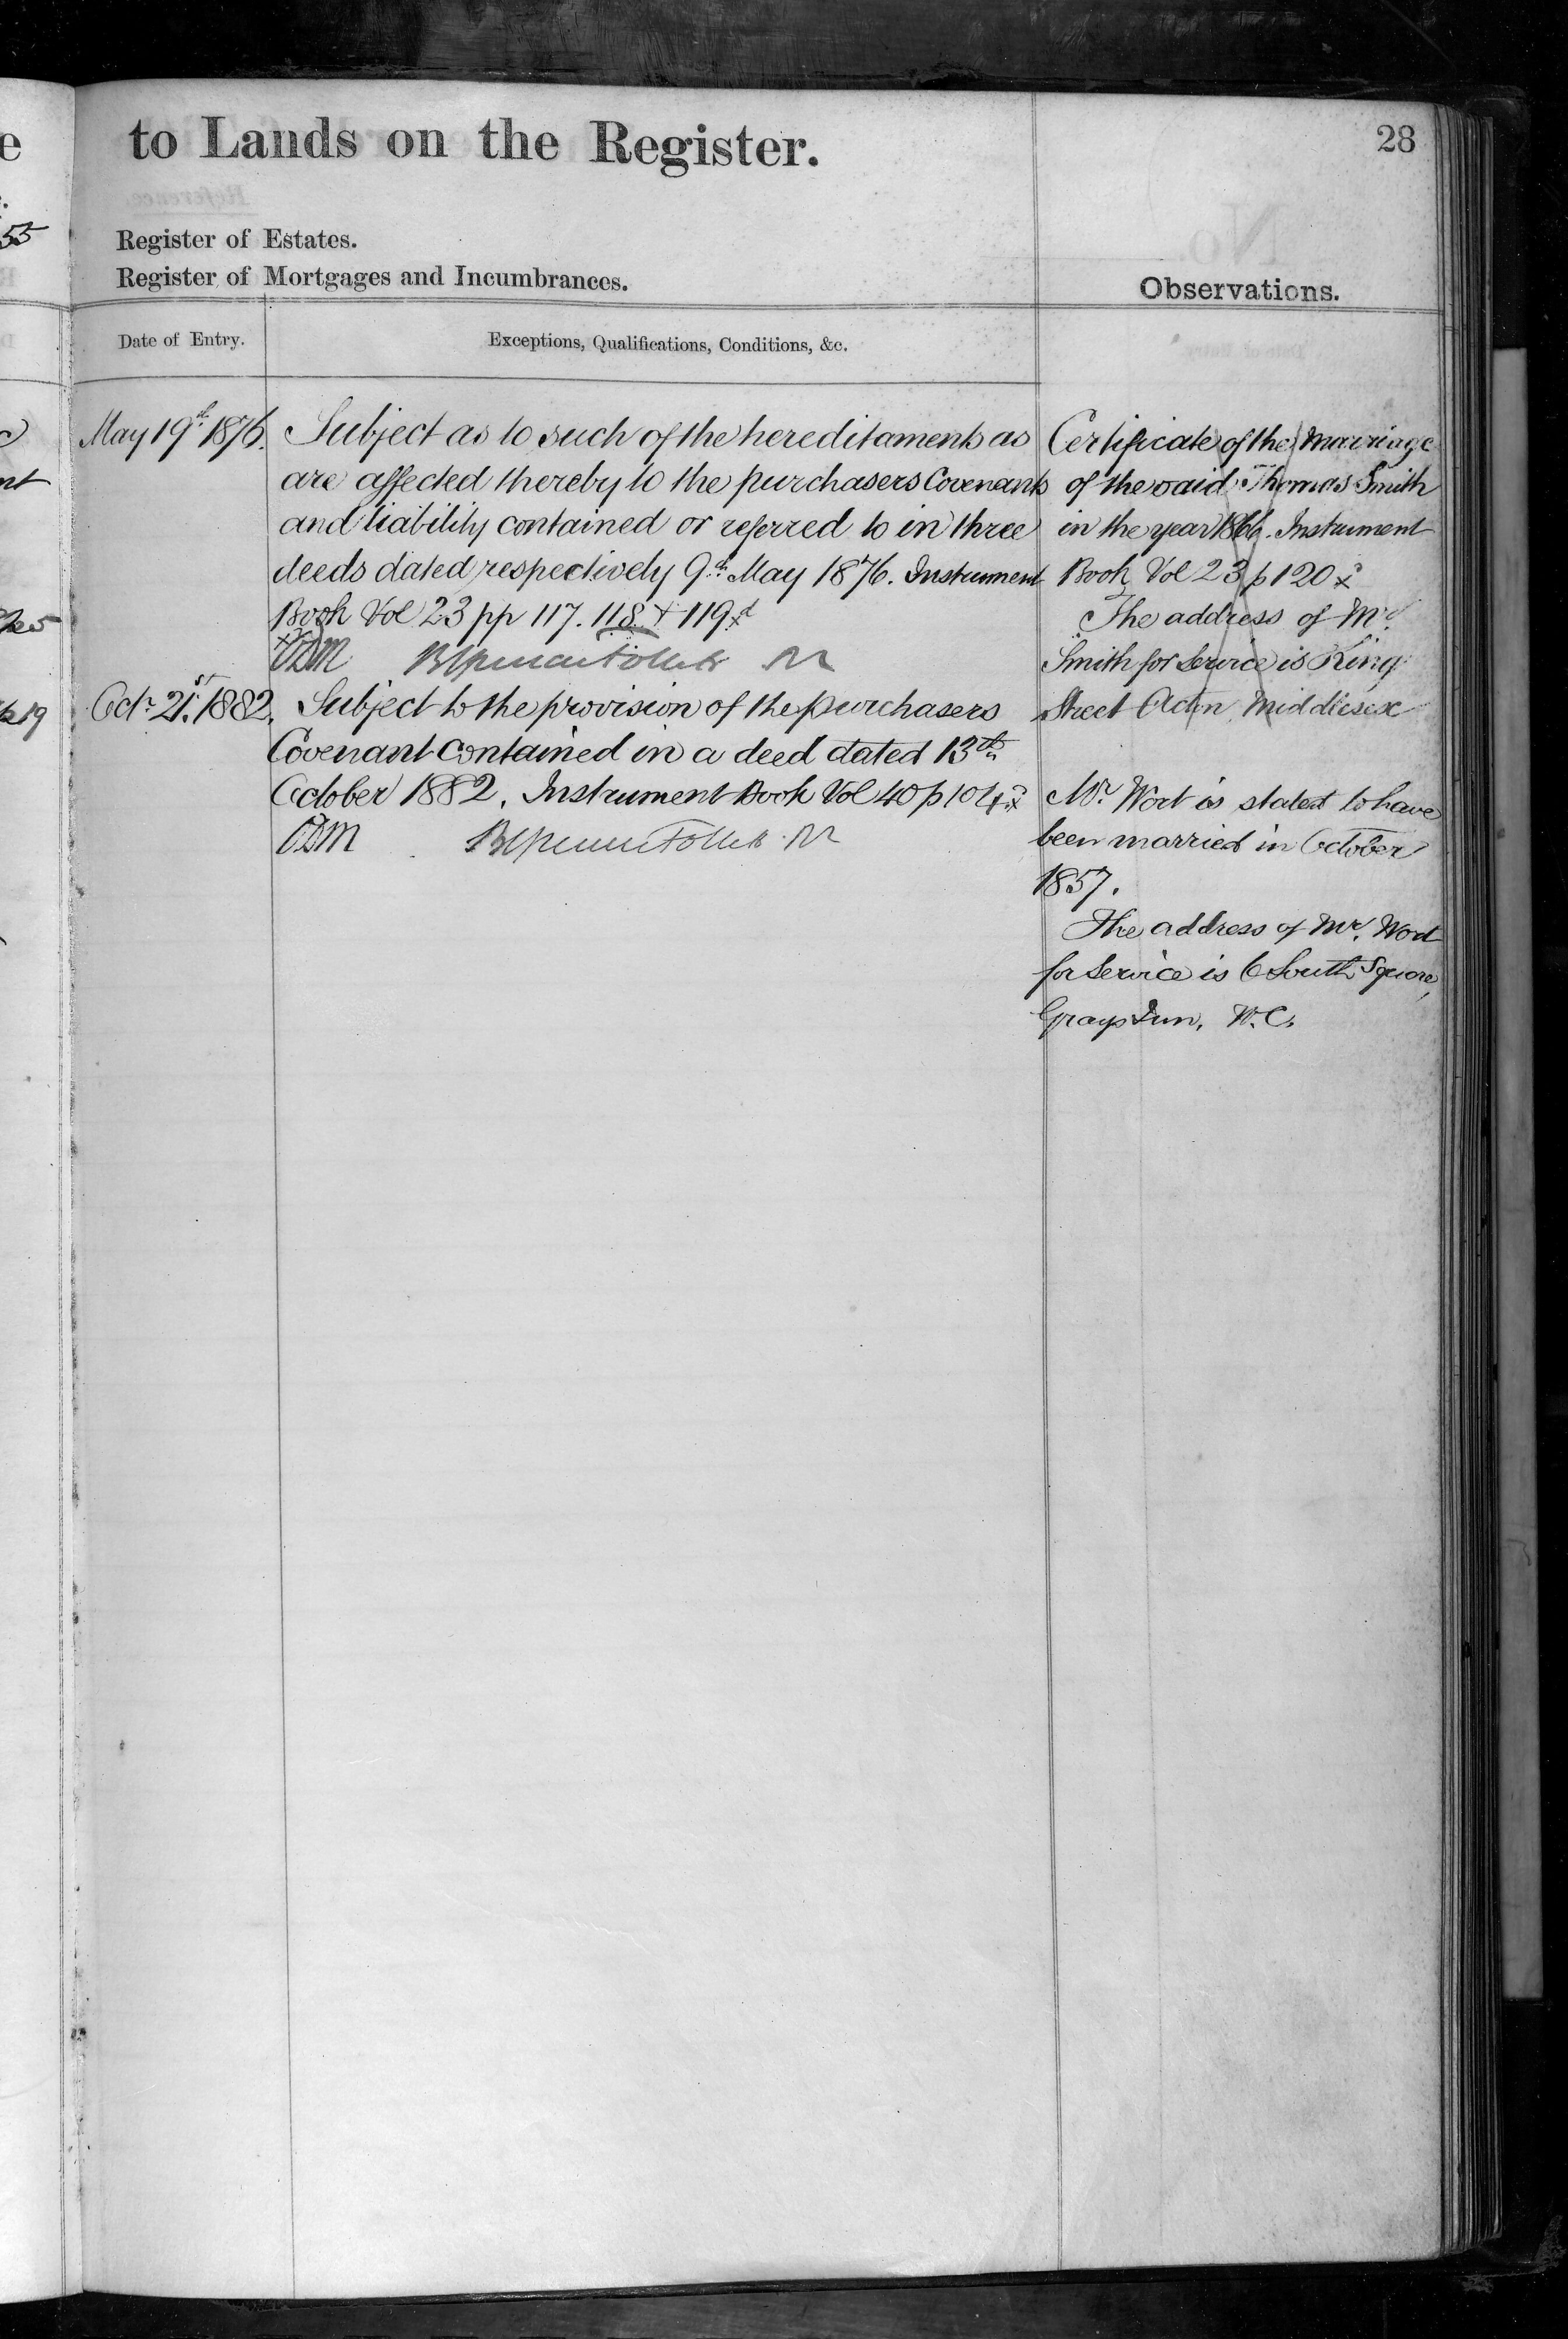 to Lands on the Register.
28
Register of Estates.
Register of Mortgages and Incumbrances.
Observations.
Date of Entry.
Exceptions, Qualifications, Conditions, &c.
May 19th 1876.
Subject as to such of the hereditaments as
are affected thereby to the purchasers Covenants
and liability contained or referred to in three
deeds dated respectively 9th May 1876. Instrument
Book Vol 23 pp 117. 118. + 119
Oct. 21st. 1882.
Subject to the provision of the purchasers
Covenant contained in a deed dated 13th
October 1882. Instrument Book Vol 40 p 104
Certificate of the Marriage
of the said Thomas Smith
in the year 1866. Instrument
Book Vol 23 p 120
The address of Mr.
Smith for Service is King
Street Acton Middlesex
Mr. Wort is stated to have
been married in October
1857.
The address of Mr. Wort
for Service is 6 South Square,
Grays Inn, W.C.
e
55
nt
19